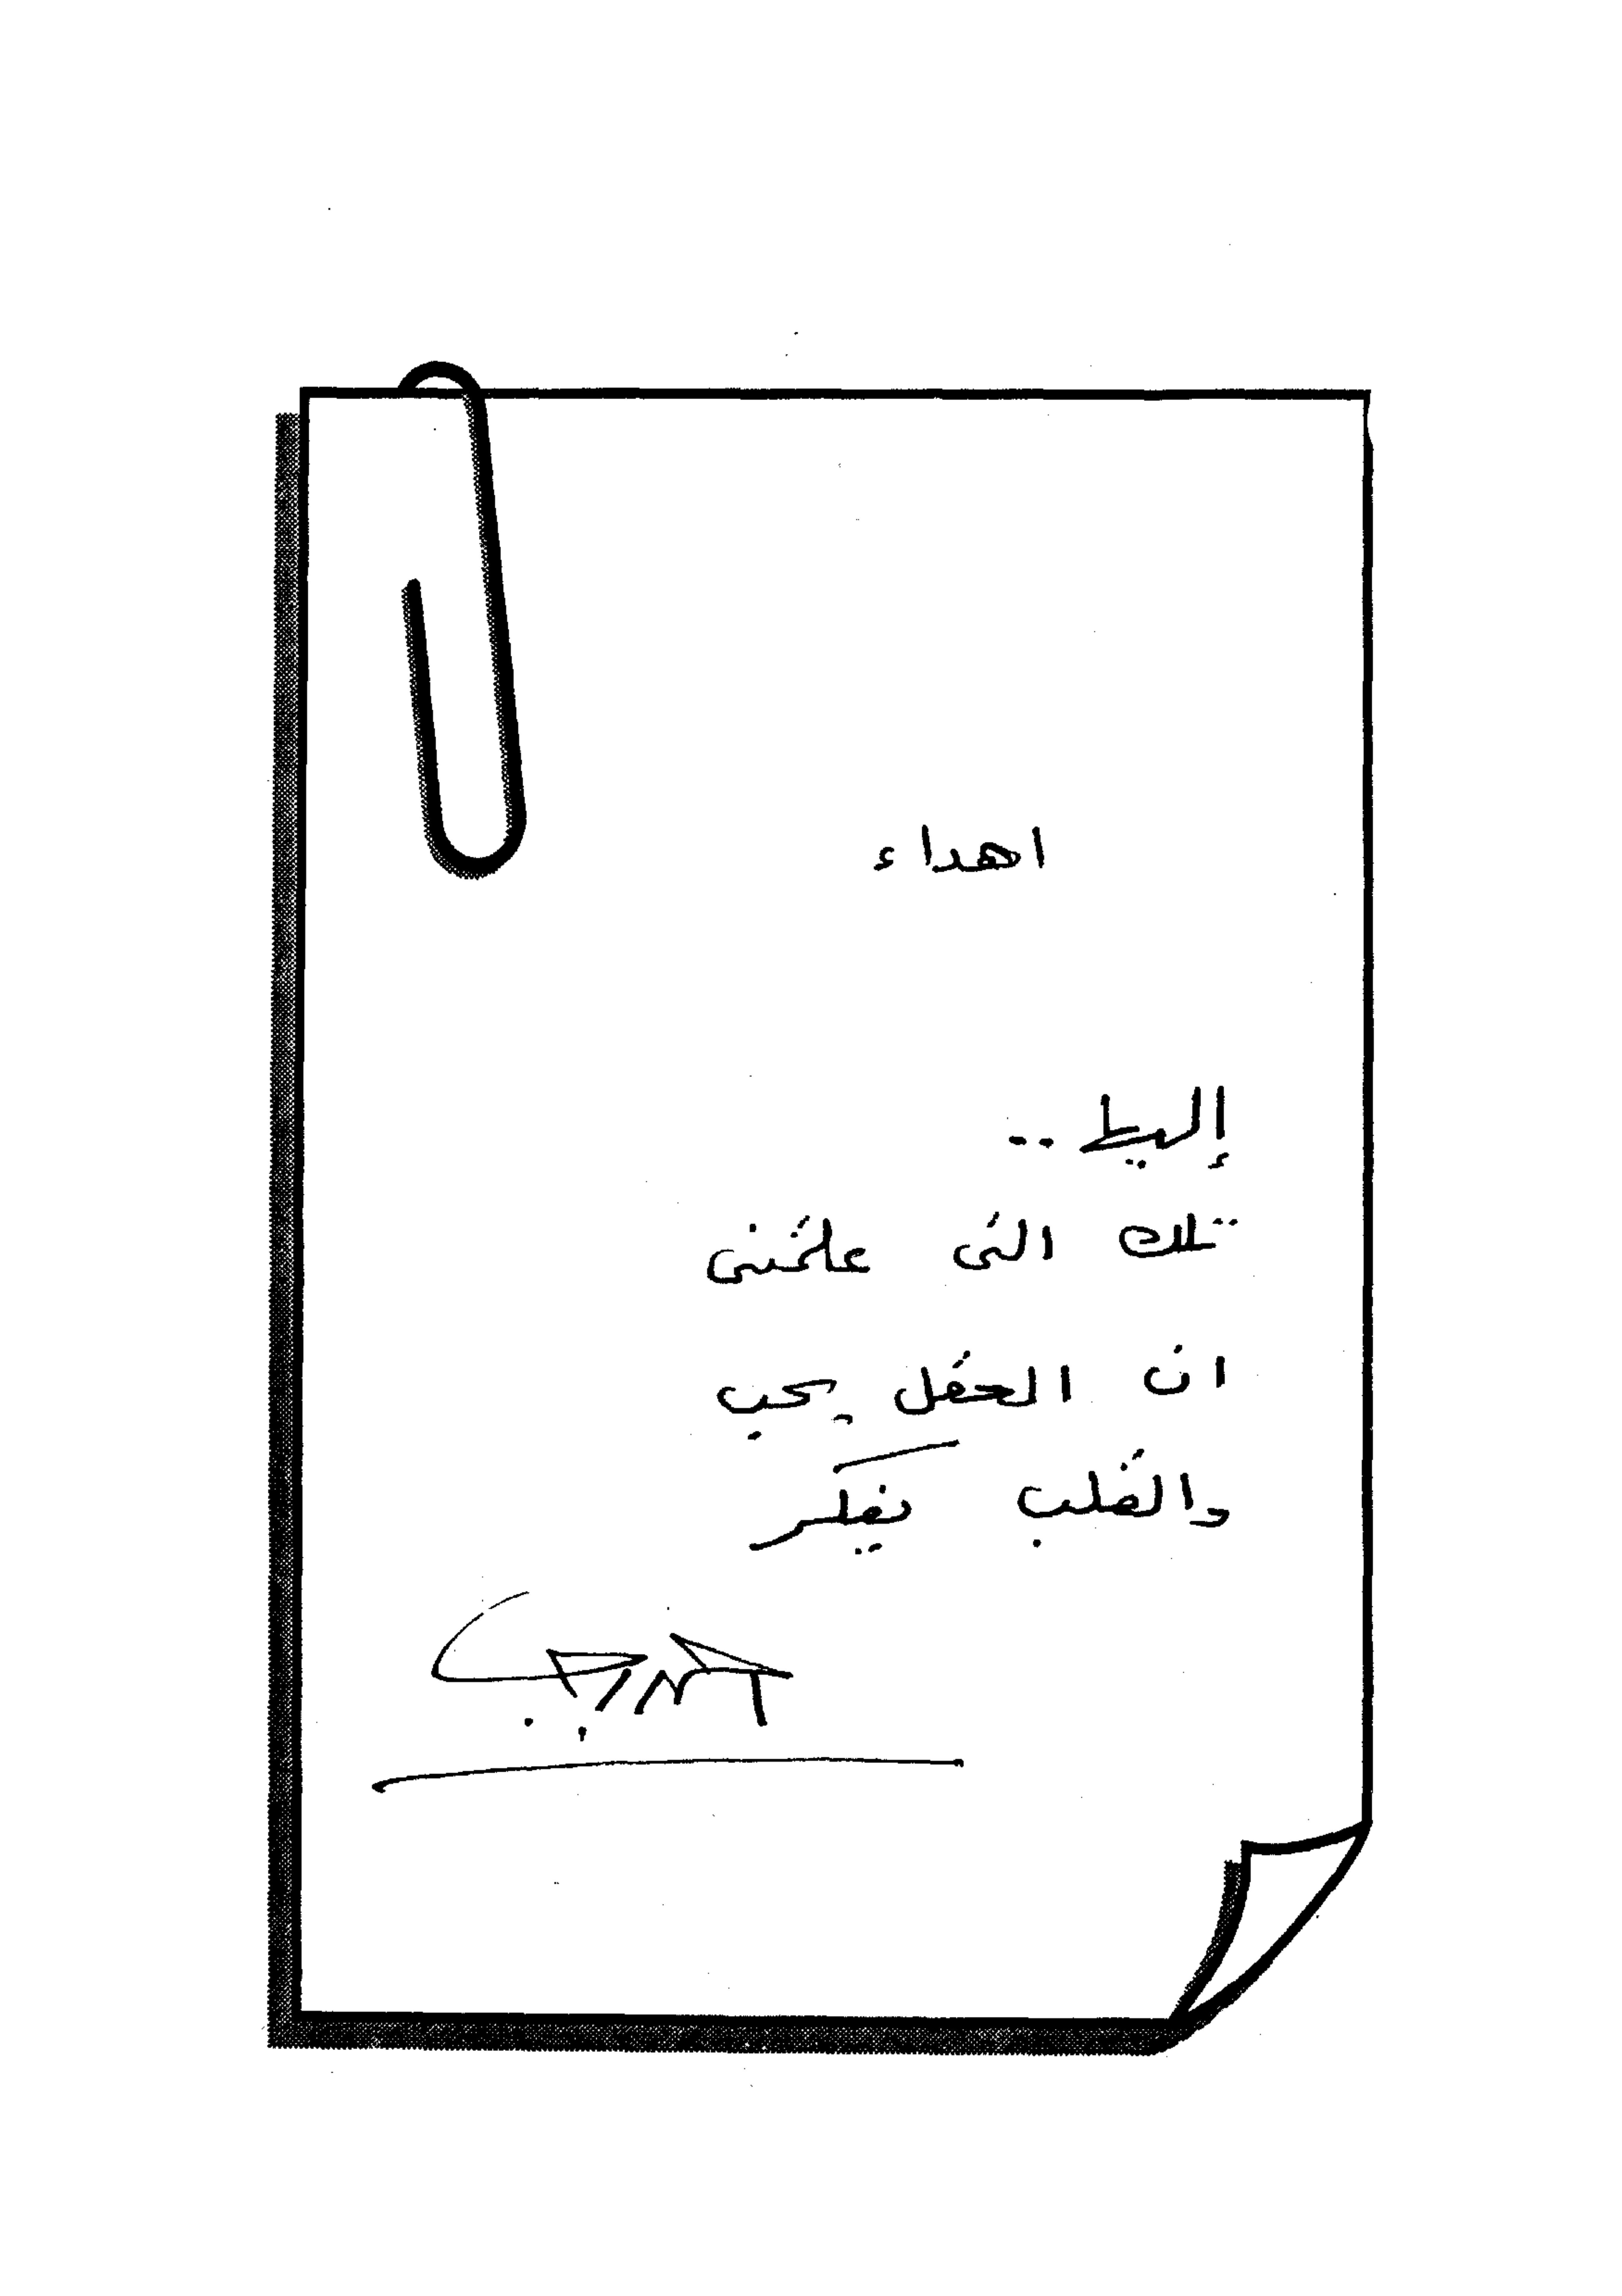 اهداء
إليها ..
تلك التى علمتنى
ان العقل يحب
والقلب يفكر